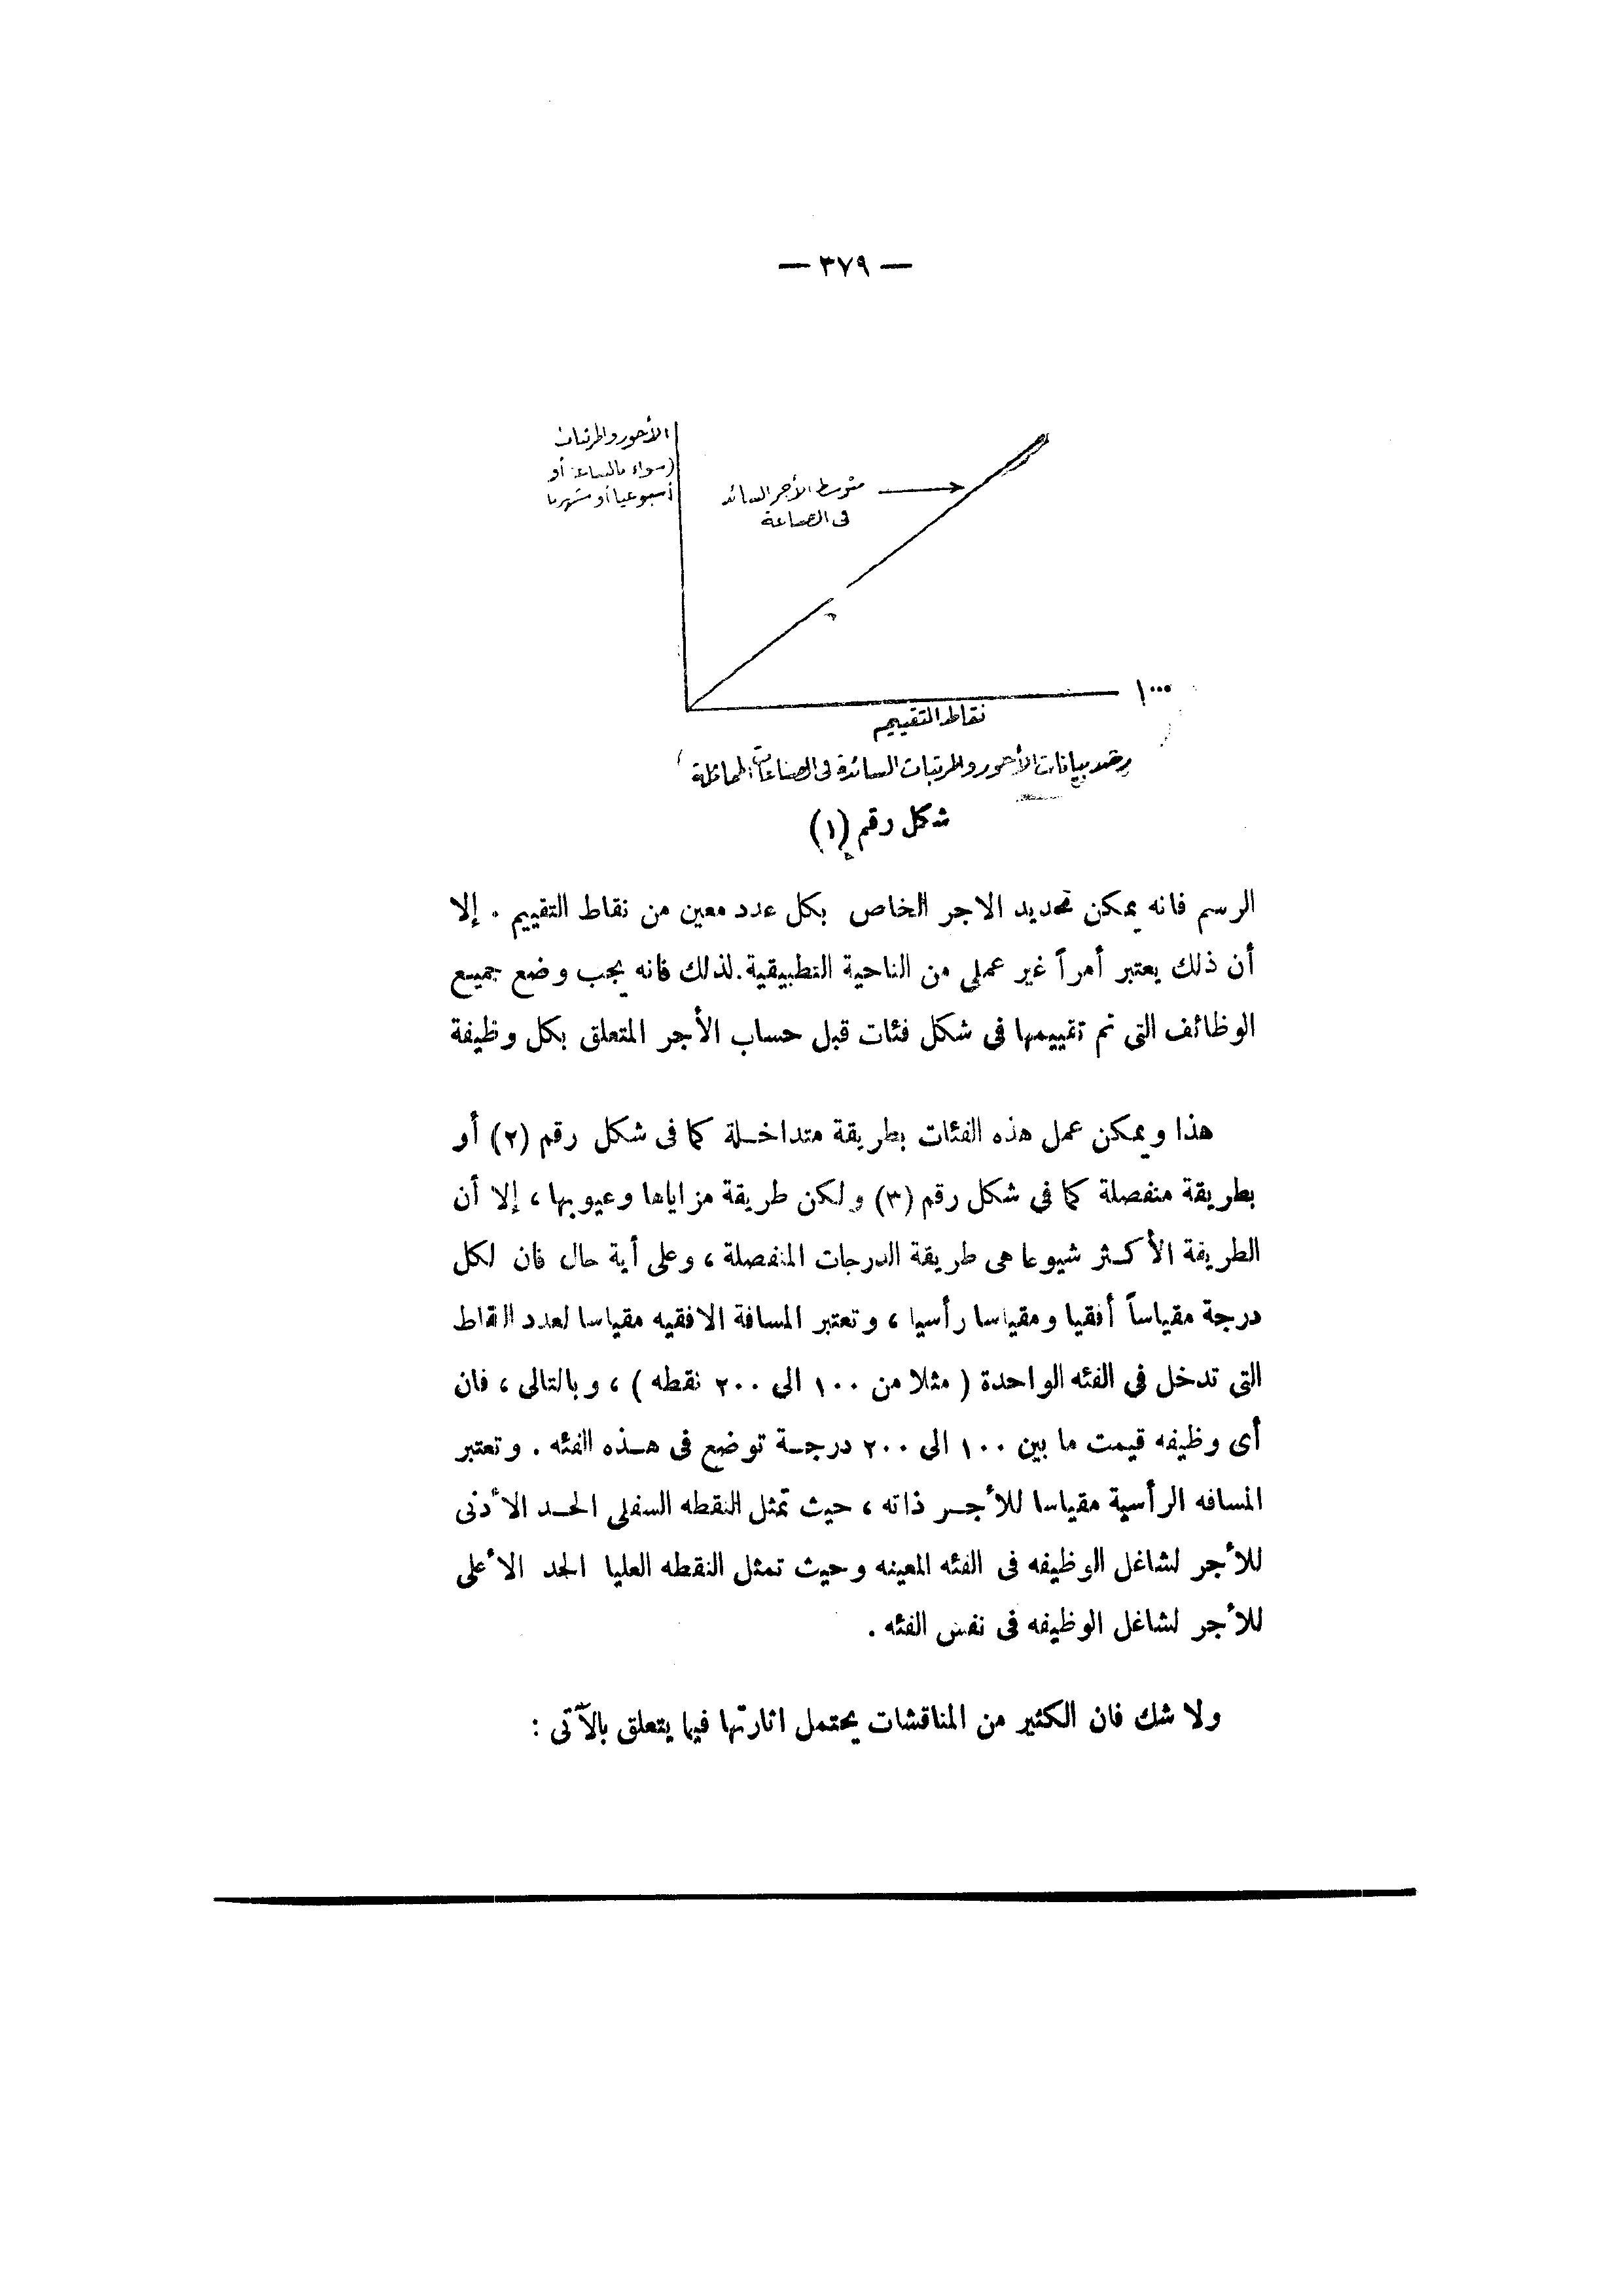 — ٣٧٩ —
الأجور والمرتبات
(سواء بالساعة أو
أسبوعيا أو شهريا
متوسط الأجر السائد
فى الصناعة
١٠٠٠
نقاط التقييم
رصد بيانات الأجور والمرتبات السائدة فى الصناعات المماثلة
شكل رقم (١)
الرسم فانه يمكن تحديد الاجر الخاص بكل عدد معين من نقاط التقييم . إلا
أن ذلك يعتبر أمراً غير عملى من الناحية التطبيقية. لذلك فانه يجب وضع جميع
الوظائف التى تم تقييمها فى شكل فئات قبل حساب الأجر المتعلق بكل وظيفة
هذا ويمكن عمل هذه الفئات بطريقة متداخلة كما فى شكل رقم (٢) أو
بطريقة منفصلة كما فى شكل رقم (٣) ولكن طريقة مزاياها وعيوبها ، إلا أن
الطريقة الأكثر شيوعا هى طريقة الدرجات المنفصلة ، وعلى أية حال فان لكل
درجة مقياساً أفقيا ومقياسا رأسيا ، وتعتبر المسافة الافقيه مقياسا لعدد النقاط
التى تدخل فى الفئه الواحدة ( مثلا من ١٠٠ الى ٢٠٠ نقطه ) ، وبالتالى ، فان
أى وظيفه قيمت ما بين ١٠٠ الى ٢٠٠ درجة توضع فى هذه الفئه . وتعتبر
المسافه الرأسية مقياسا للأجر ذاته ، حيث تمثل النقطه السفلى الحد الأدنى
للأجر لشاغل الوظيفه فى الفئه المعينه وحيث تمثل النقطه العليا الحد الأعلى
للأجر لشاغل الوظيفه فى نفس الفئه .
ولا شك فان الكثير من المناقشات يحتمل اثارتها فيما يتعلق بالآتى :